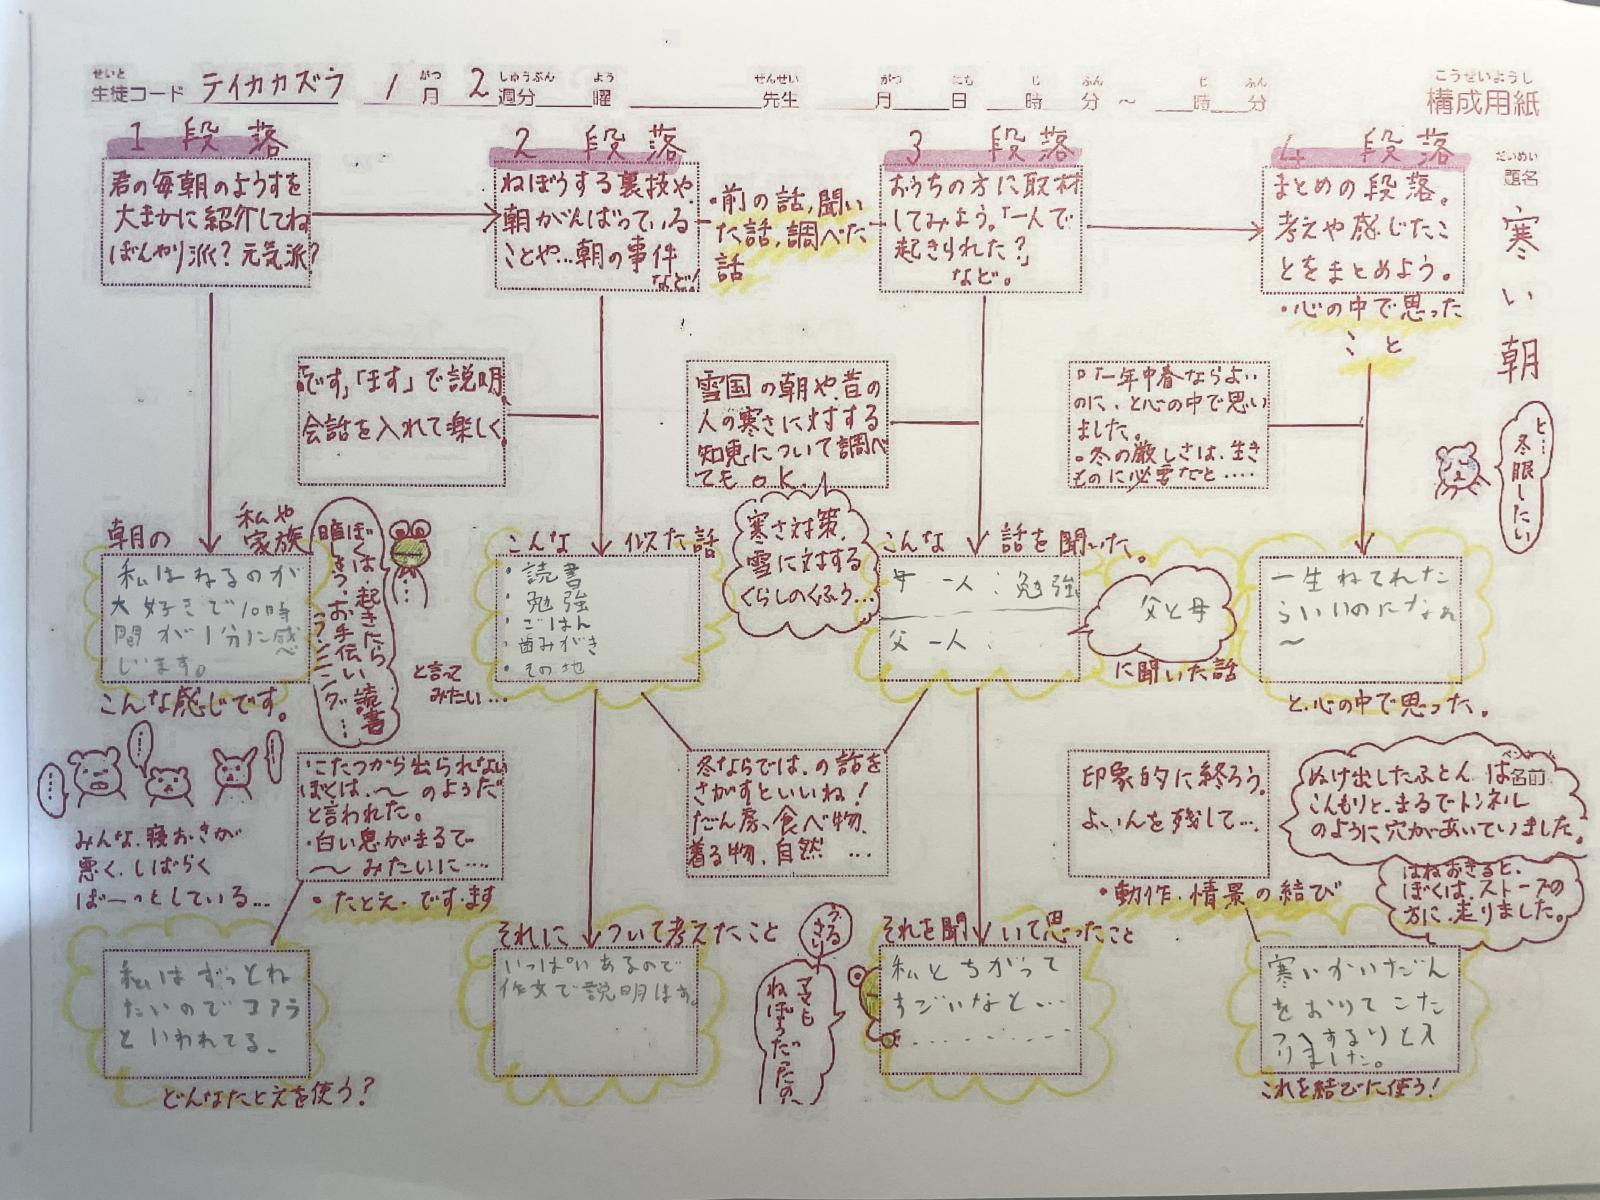 せいと
生徒コード テイカカズラ 1月 2週分 曜 先生 月 日 時 分 ～ 時 分
がつ しゅうぶん よう せんせい がつ にち じ ふん じ ふん
こうせいようし
構成用紙
だいめい
題名
寒い朝
1 段落
君の毎朝のようすを
大まかに紹介してね
ぼんやり派？元気派？
2 段落
ねぼうする裏技や、
朝がんばっている
ことや…朝の事件
など！
・前の話，聞い
た話，調べた
話
3 段落
おうちの方に取材
してみよう。「一人で
起きれた？」
など。
4 段落
まとめの段落。
考えや感じたこ
とをまとめよう。
・心の中で思った
こと
「です」「ます」で説明。
会話を入れて楽しく。
雪国の朝や、昔の
人の寒さに対する
知恵について調べ
てもOK.
○「一年中春ならよい
のに、と心の中で思い
ました。
○冬の厳しさは、生き
ものに必要だと‥‥
ヒ…
冬眠したい
朝の
私や
家族
私はねるのが
大好きで10時
間が1分に感
じます。
こんな感じです。
ぼくは、起きたら
暗しょう、お手伝い、読書
ランニング…
と言って
みたい…
こんな 似た話
・読書
・勉強
・ごはん
・歯みがき
・その地
寒さ対策、
雪に対する
くらしのくふう…
こんな 話を聞いた。
母 一人：勉強
父 一人：
父と母
に聞いた話
一生ねてれた
らいいのになぁ
～
と、心の中で思った。
みんな、寝おきが
悪く、しばらく
ぼーっとしている…
・こたつから出られない
ぼくは、～のようだ
と言われた。
・白い息がまるで
～みたいに‥‥
・たとえ・です・ます
冬ならでは、の話を
さがすといいね！
だん房、食べ物、
着る物、自然 …
印象的に終ろう。
よいんを残して…
・動作・情景の結び
ペンネーム
ぬけ出したふとんは名前
こんもりと、まるでトンネル
のように穴があいていました。
はねおきると、
ぼくは、ストーブの
方に、走りました。
私はずっとね
たいのでコアラ
といわれてる。
どんなたとえを使う？
それに ついて考えたこと
いっぱいあるので
作文で説明はす。
ママも
ねぼうだったの、
それを聞いて思ったこと
私とちがって
すごいなと…
寒いかいだん
をおりてこた
つへするりと入
りました。
これを結びに使う！